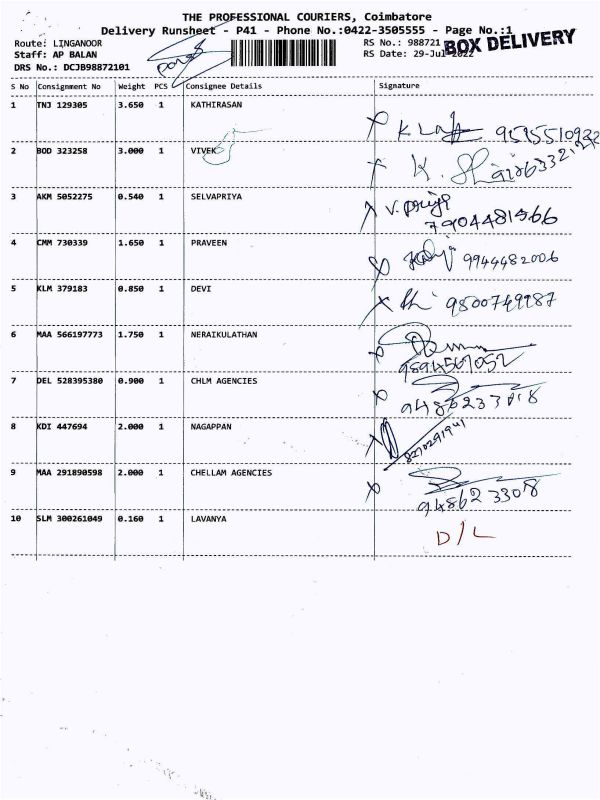 THE PROFESSIONAL COURIERS, Coimbatore
Delivery Runsheet - P41 - Phone No.:0422-3505555 - Page No.:1
Route: LINGANOOR RS No.: 988721 BOX DELIVERY
Staff: AP BALAN RS Date: 29-Jul-2022
DRS No.: DCJB98872101
S No Consignment No Weight PCS Consignee Details Signature
1 TNJ 129305 3.650 1 KATHIRASAN
2 BOD 323258 3.000 1 VIVEK
3 AKM 5052275 0.540 1 SELVAPRIYA V. Priya
4 CMM 730339 1.650 1 PRAVEEN 9944482006
5 KLM 379183 0.850 1 DEVI
6 MAA 566197773 1.750 1 NERAIKULATHAN
7 DEL 528395380 0.900 1 CHLM AGENCIES
8 KDI 447694 2.000 1 NAGAPPAN 8270291941
9 MAA 291890598 2.000 1 CHELLAM AGENCIES
948623308
10 SLM 300261049 0.160 1 LAVANYA D/L